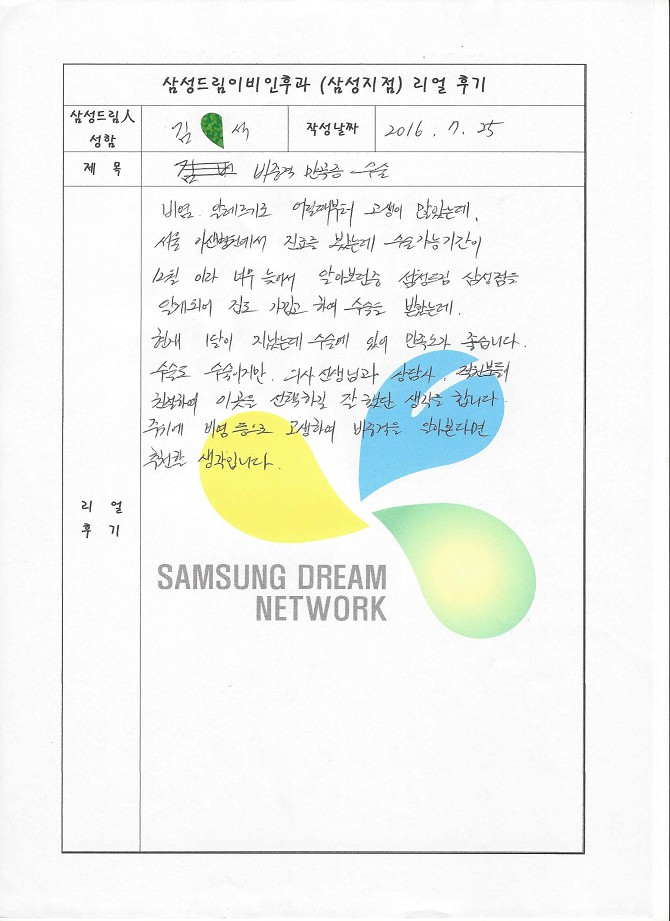 삼성드림이비인후과 (삼성지점) 리얼 후기
삼성드림人
성함
김 석
작성날짜
2016. 7. 25
제 목
비중격 만곡증 수술
리 얼
후 기
비염. 알레르기로 어릴때부터 고생이 많았는데,
서울 아산병원에서 진료를 봤는데 수술가능기간이
12월 이라 너무 늦어서 알아보던중 삼성드림 삼성점을
알게되어 집도 가깝고 하여 수술을 받았는데.
현재 1달이 지났는데 수술에 있어 만족도가 좋습니다.
수술도 수술이지만, 의사선생님과 상담사, 직원분들이
친절하여 이곳을 선택하길 잘 했단 생각을 합니다.
주위에 비염 등으로 고생하여 비중격을 알아본다면
추천할 생각입니다.
SAMSUNG DREAM
NETWORK